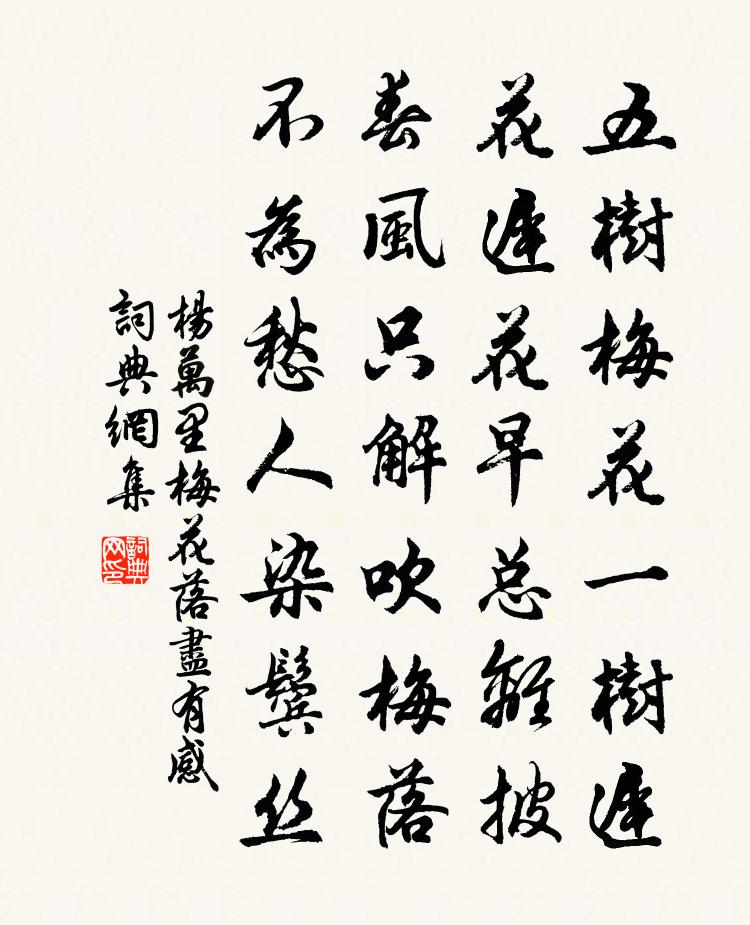 五樹梅花一樹遲
花遲花早总離披
春風只解吹梅落
不為愁人染鬢丝
楊萬里梅花落盡有感
詞典網集
詞典网印